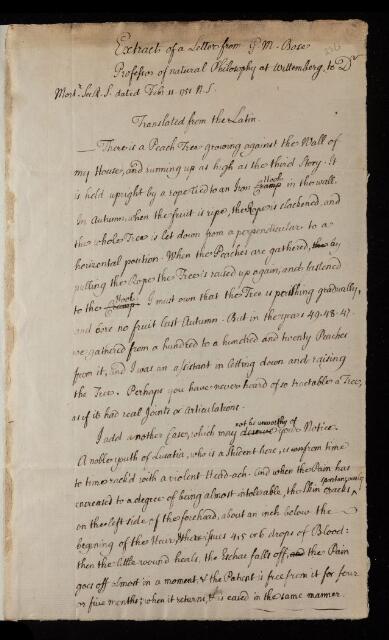 Extract of a Letter from G. M. Bose
Professor of natural Philosophy at Wittemberg, to Dr
Mortr. Sec. R. S. dated Febr. 11 1751 N.S.
Translated from the Latin.
There is a Peach Tree growing against the Wall of
my House, and running up as high as the third Story. It
is held upright by a rope tied to an Iron Hook in the wall.
In Autumn, when the fruit is ripe, the Rope is slackened, and
this whole Tree is let down from a perpendicular to a
horizontal position. When the Peaches are gathered, by
pulling the Rope the Tree is raised up again, and fastened
to the Hook. I must own that the Tree is perishing gradually,
and bore no fruit last Autumn. But in the years 49. 48. 47.
we gathered from a hundred to a hundred and twenty Peaches
from it, and I was an assistant in letting down and raising
the Tree. Perhaps you have never heard of so tractable a Tree,
as if it had real Joints or Articulations.
I add another Case, which may not be unworthy of your Notice.
A noble youth of Lusatia, who is a Student here, is from time
to time rack'd with a violent Head-ach. And when the Pain has
increased to a degree of being almost intolerable, the Skin spontaneously cracks
on the left side of the forehead, about an inch below the
begining of the Hair, & there issues 4, 5 or 6 drops of Blood:
then the little wound heals, the Eschar falls off, the Pain
goes off almost in a moment, & the Patient is free from it for four
or five months; when it returns, & is eased in the same manner.